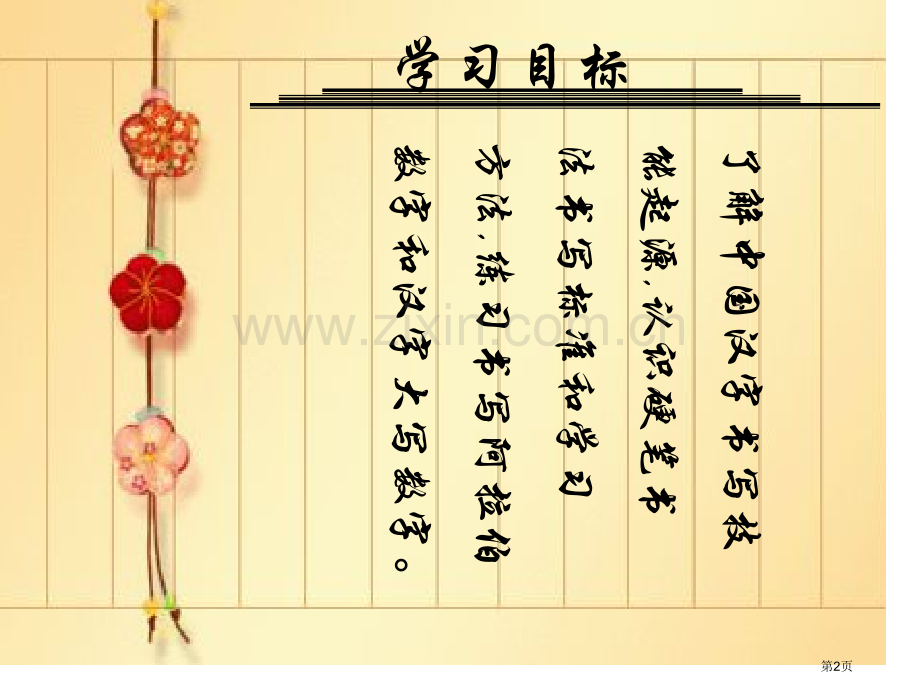 学习目标
了解中国汉字书写技
能起源,认识硬笔书
法书写标准和学习
方法,练习书写阿拉伯
数字和汉字大写数字。
www.zixin.com.cn
第2页